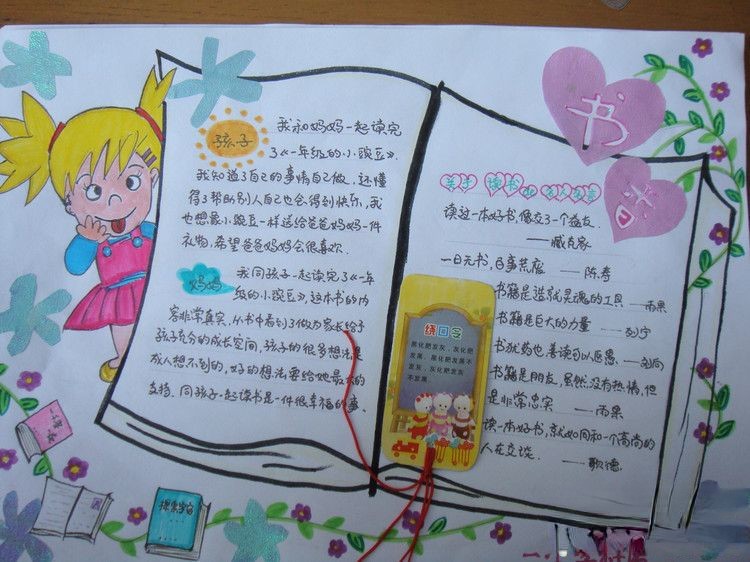 书
香
孩子
我和妈妈一起读完
了《一年级的小豌豆》.
我知道了自己的事情自己做,还懂
得了帮助别人自己也会得到快乐,我
也想跟小豌豆一样送给爸爸妈妈一件
礼物,希望爸爸妈妈会很喜欢.
妈妈
我同孩子一起读完了《一年
级的小豌豆》,这本书的内
容非常真实,从书中看到了做为家长给予
孩子充分的成长空间,孩子的很多想法是
成人想不到的,好的想法要给她最大的
支持.同孩子一起读书是一件很幸福的事.
关于读书的名人名言
读过一本好书,像交了一个益友.
——臧克家
一日无书,百事荒废 ——陈寿
书籍是造就灵魂的工具 ——雨果
书籍是巨大的力量 ——列宁
书犹药也,善读可以医愚.——刘向
书籍是朋友,虽然没有热情,但
是非常忠实 ——雨果
读一本好书,就如同和一个高尚的
人在交谈. ——歌德
绕口令
黑化肥发灰,灰化肥
发黑.黑化肥发黑不
发灰,灰化肥发灰
不发黑.